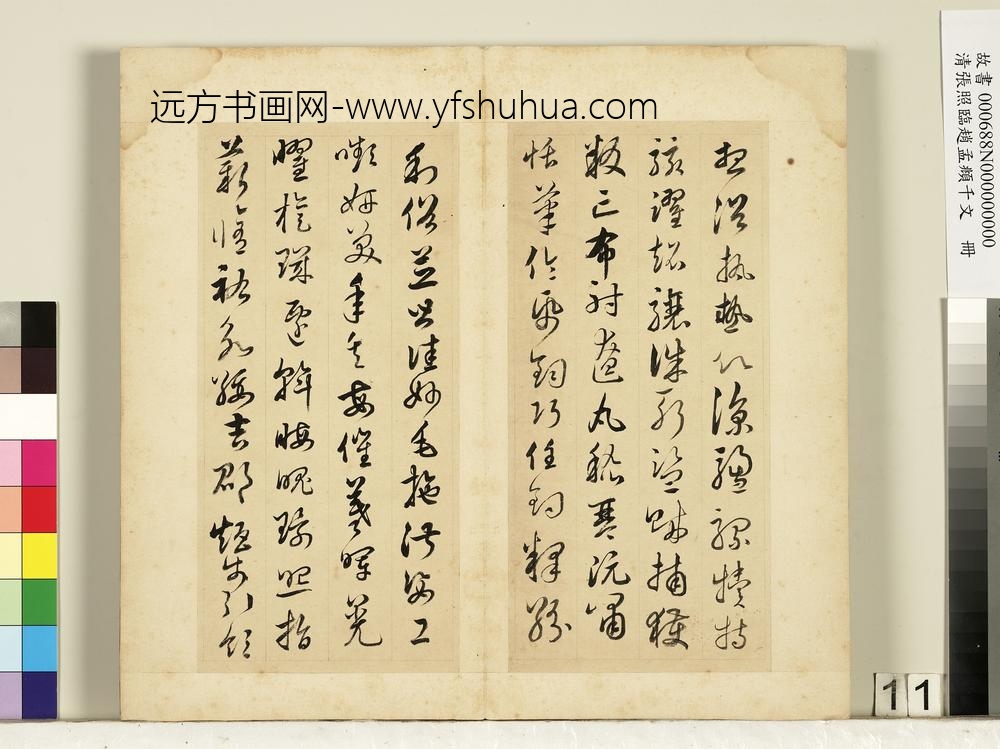 远方书画网-www.yfshuhua.com
故書 000688N000000000
清張照臨趙孟頫千文　冊
想浴執熱願涼驢騾犢特
駭躍超驤誅斬盜賊捕獲
叛亡布射遼丸嵇琴阮嘯
恬筆倫紙鈞巧任釣釋紛
利俗並皆佳妙毛施淑姿工
嚬妍笑年矢每催羲暉晃
曜旋璣懸斡晦魄環照指
薪修祜永綏吉劭矩步引領
11